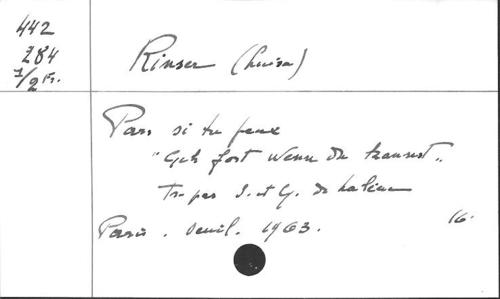 442
284
1/2 Fr.
Rinser (Luise)
Pars si tu peux
"Geh fort wenn du kannst"
Tr. par S. et G. de Lalène
Paris. Seuil. 1963. 16.